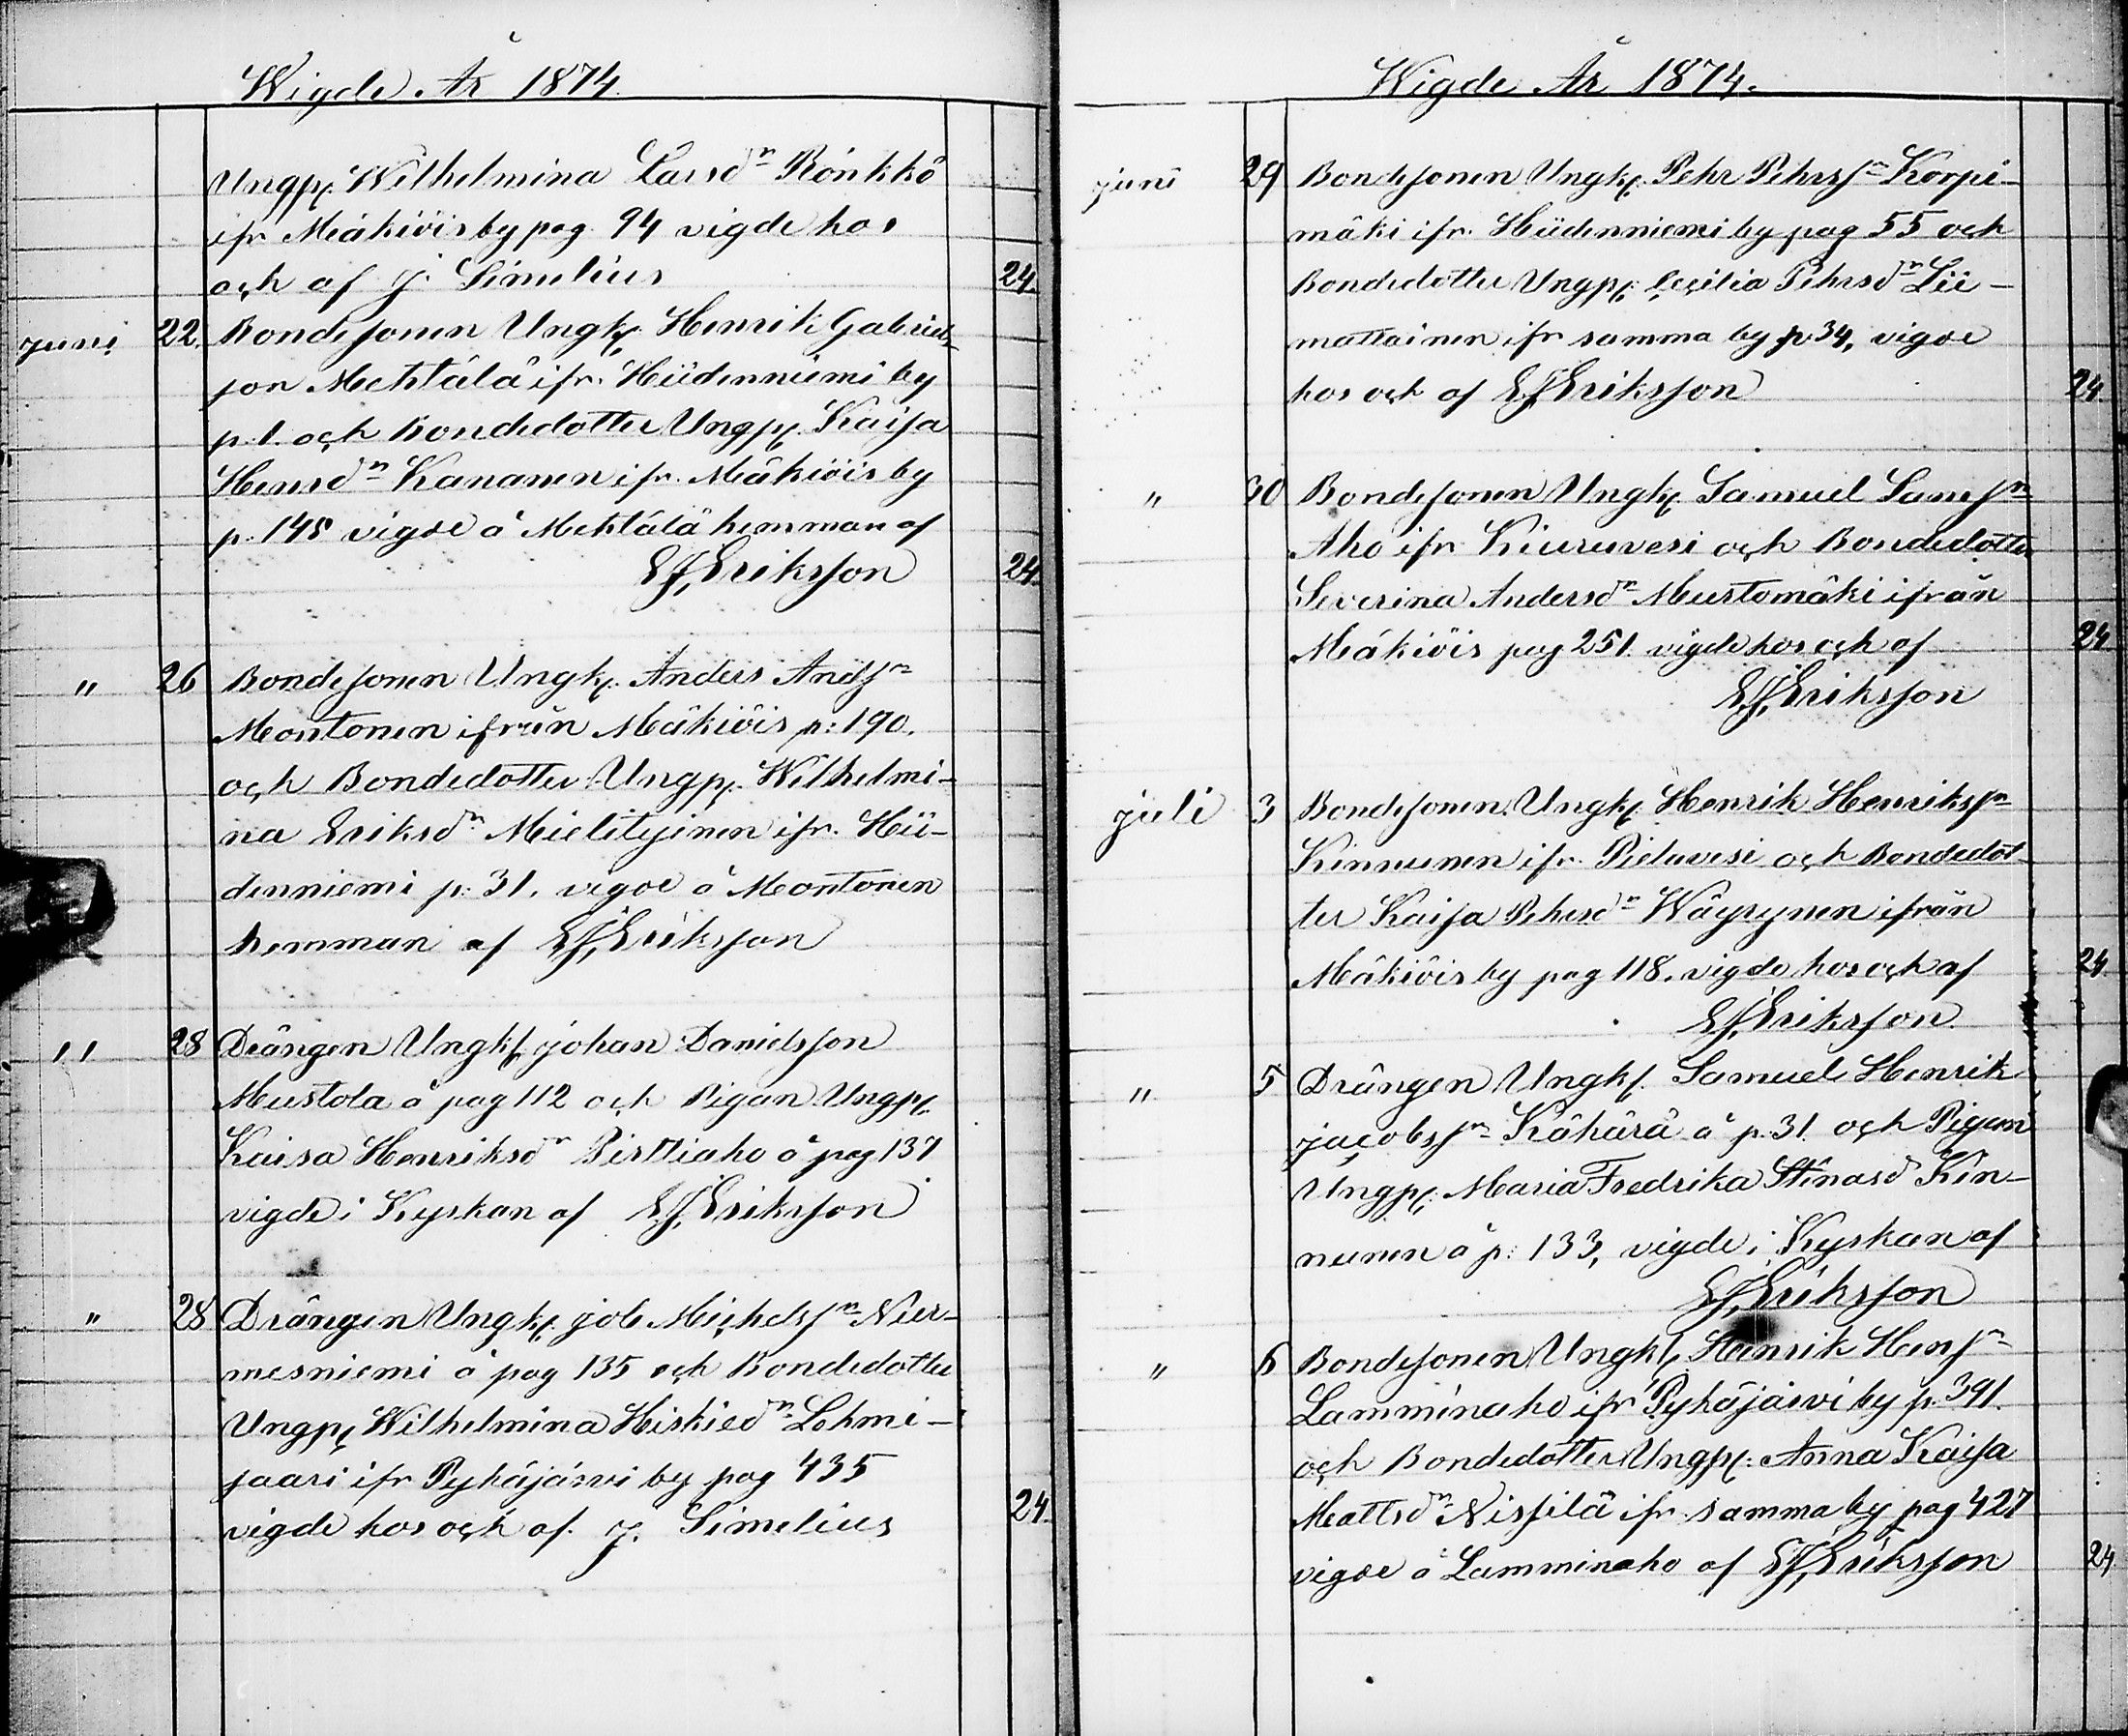 Wigde År 1874.
Ungp. Wilhelmina Larsdn Rönkkö
ifr Mäkiöis by pag. 94 vigde hos
och af J. Simelius 24.
juni 22. Bondesonen Ungk. Henrik Gabriels
son Mehtälä ifr. Hiidenniemi by
p. 1. och Bondedotter Ungp. Kaisa
Hensdn Kananen ifr. Mäkiöis by
p. 145 vigde å Mehtälä hemman af
EJ,Eriksson 24.
" 26 Bondesonen Ungk. Anders Andsn
Montonen ifrån Mäkiöis p: 190.
och Bondedotter Ungp. Wilhelmi-
na Eriksdn Mielityinen ifr. Hii-
denniemi p: 31. vigde å Montonen
hemman af EJ,Eriksson
" 28 Drängen Ungk. johan Danielsson
Mustola å pag 112 och Pigan Ungp.
Kaisa Henriksdr Pirttiaho å pag 137
vigde i Kyrkan af EJ,Eriksson
" 28 Drängen Ungk. job Michelssn Nur-
mesniemi å pag 135 och Bondedotter
Ungp. Wilhelmina Hiskiedn Lohmi-
jaari ifr Pyhäjärvi by pag 435
vigde hos och af J. Simelius 24.
Wigde År 1874.
juni 29 Bondesonen Ungk. Pehr Pehrssn Korpi-
mäki ifr. Hiidenniemi by pag 55 och
Bondedotter Ungp. Cecilia Pehrsdn Lii-
mattainen ifr samma by p 34, vigde
hos och af EJEriksson 24.
" 30 Bondesonen Ungk. Samuel Samsn
Aho ifr Kiuruvesi och Bondedotter
Severina Andersdn Mustomäki ifrån
Mäkiöis pag 251. vigde hos och af 24
EJ,Eriksson
juli 3 Bondesonen Ungk. Henrik Henrikssn
Kinnunen ifr. Pielavesi och Bondedot
ter Kaisa Pehrsdn Wäyrynen ifrån
Mäkiöis by pag 118. vigde hos och af 24.
EJ,Eriksson
" 5 Drängen Ungk. Samuel Henrik
jacobssn Kähärä å p. 31 och Pigan
Ungp. Maria Fredrika Stinasd Kin-
nunen å p: 133, vigde i Kyrkan af
EJ,Eriksson
" 6 Bondesonen Ungk. Henrik Hensn
Lamminaho ifr Pyhäjärvi by p. 391.
och Bondedotter Ungp. Anna Kaisa
Mattsdn Nissilä ifr. samma by pag 427
vigde å Lamminaho af EJ,Eriksson 24